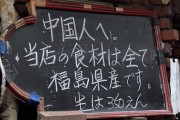 中国人へ。
当店の食材は全て
福島県産です。
半は360えん